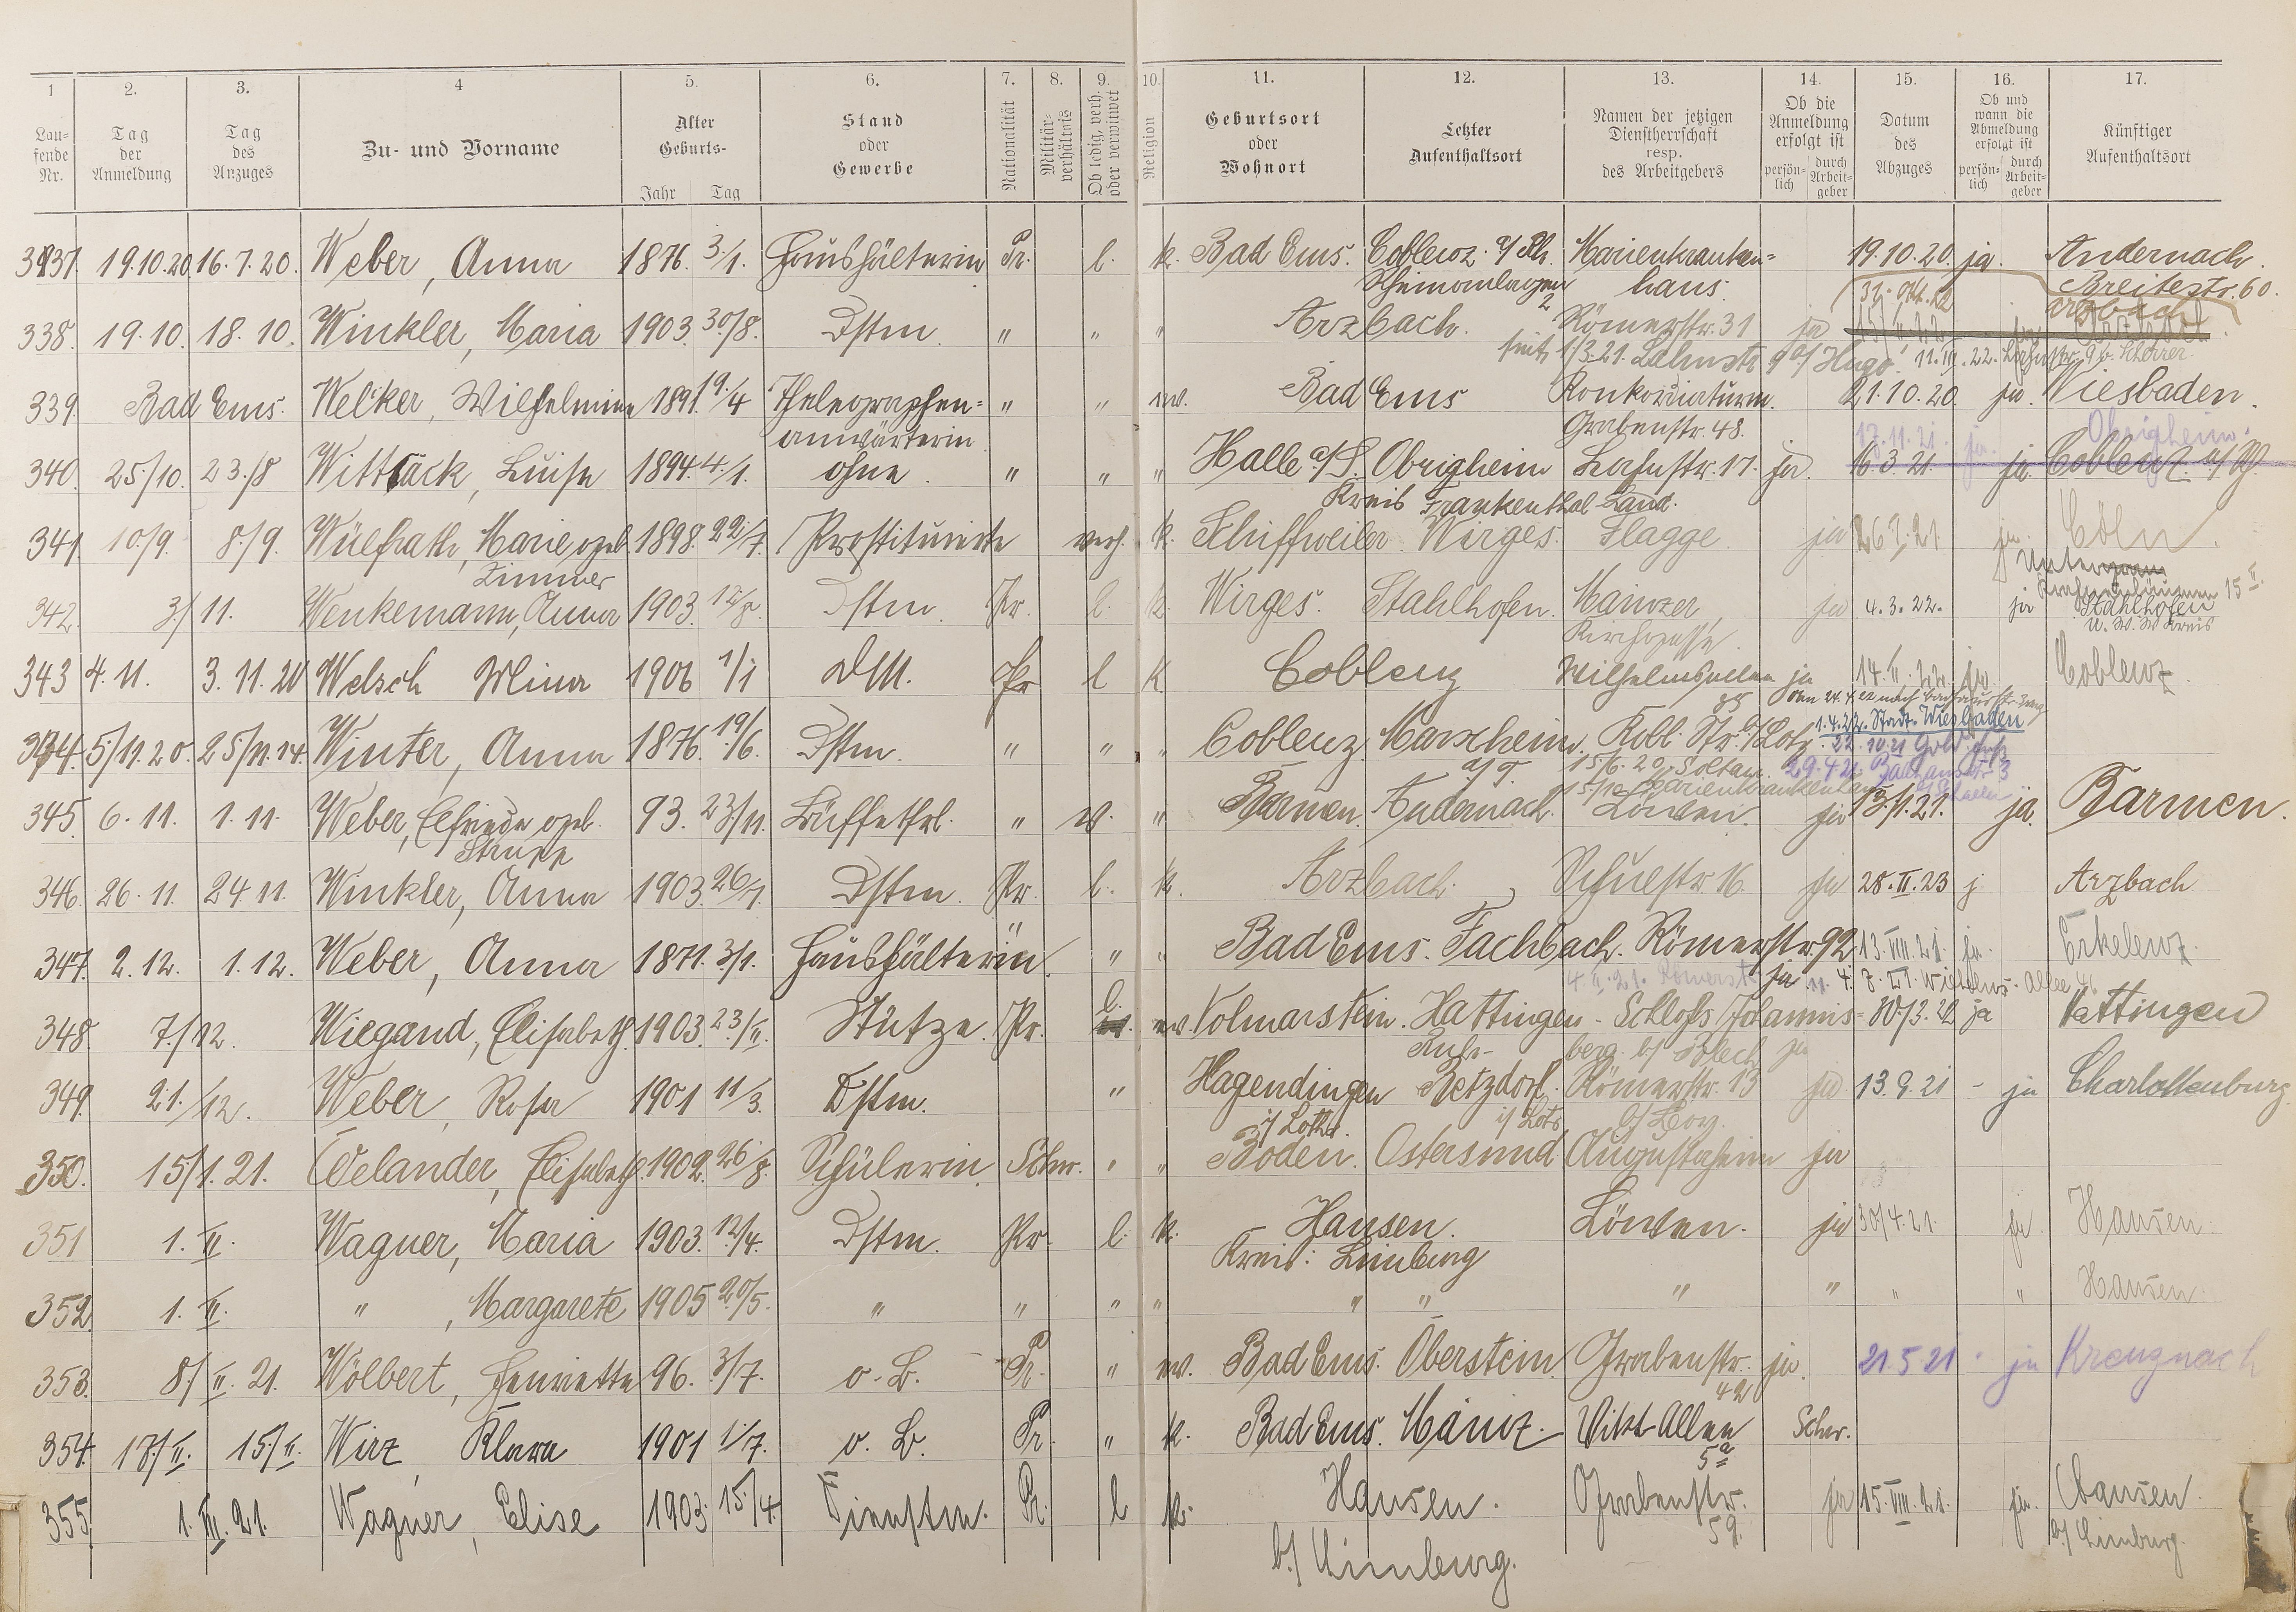 1 2. 3. 4 5. 6. 7. 8. 9. 10. 11. 12. 13. 14. 15. 16. 17.
Lau-
fende
Nr.
Tag
der
Anmeldung
Tag
des
Anzuges
Zu- und Vorname
Alter
Geburts-
Jahr Tag
Stand
oder
Gewerbe
Nationalität
Militär-
verhältnis
Ob ledig, verh.
oder verwitwet
Religion
Geburtsort
oder
Wohnort
Letzter
Aufenthaltsort
Namen der jetzigen
Dienstherrschaft
resp.
des Arbeitgebers
Ob die
Anmeldung
erfolgt ist
persön-
lich
durch
Arbeit-
geber
Datum
des
Abzuges
Ob und
wann die
Abmeldung
erfolgt ist
persön-
lich
durch
Arbeit-
geber
Künftiger
Aufenthaltsort
337. 19.10.20. 16.7.20. Weber, Anna 1876. 3./1. Haushälterin Pr. l. k. Bad Ems. Coblenz a/Rh. Marienkranken- 19.10.20. ja. Andernach.
Rheinanlagen haus. Breitestr. 60.
2 31. Okt. 22 Arzbach
338. 19.10. 18.10. Winkler, Maria 1903. 30./8. Dstm. " " " Arzbach. Römerstr. 31 ja
seit 1/3.21. Lahnstr. 9 b/ Hugo! 11.III.22. Lahnstr. 9 b.
339. Bad Ems. Welker, Wilhelmine 1891. 19./4 Thelegraphen- " " ev. Bad Ems Konkordiaturm. 21.10.20. ja. Wiesbaden.
anwärterin Grabenstr. 48. 17.11.21. ja. Obrigheim.
340. 25./10. 23./8 Wittrack, Luise 1894. 4./1. ohne. " " " Halle a/S. Obrigheim Lahnstr. 17. ja. 16.3.21. ja. Coblenz a/Rh.
Kreis Frankenthal-Land.
341. 10./9. 8./9. Wülfrath, Marie geb. 1898. 22./7. Prostituierte verh. k. Schiffweiler. Wirges. Flagge ja 26.7.21. ja. Cöln.
Zimmer
342. 3./11. Wenkemann, Anna 1903. 12./8. Dstm. Pr. l. k. Wirges. Stahlhofen. Mainzer, ja 4.3.22. ja Stahlhofen 15 II.
Kirchgasse. U. W. W Kreis
343 4.11. 3.11.20 Welsch Mina 1906 1/1 DM. Pr l K Coblenz Wilhelmsallee ja 14.II.22. ja. Coblenz.
1.4.22. Stadt Wiesbaden
344. 5./11.20. 25./11.14. Winter, Anna 1876. 19./6. Dstm. " " " Coblenz. Marxheim. Kobl. Str. b/Lotz. 22.10.21 Gold. Faß
a/T. 15/6.20. Soltau. 29.4.21. Badhausstr. 3
15./10. Marienkrankenhaus
345. 6.11. 1.11. Weber, Elfriede geb. 93. 23./11. Büffetfrl. " w. " Barmen. Andernach. Löwen. ja 13./1.21. ja. Barmen.
346. 26.11. 24.11. Winkler, Anna 1903. 26./1. Dstm. Pr. l. k. Arzbach. Schulstr. 16. ja 28.II.23 j. Arzbach
347. 2.12. 1.12. Weber, Anna 1871. 3./1. Haushälterin. " " " Bad Ems. Fachbach. Römerstr. 92. 13.VIII.21. ja. Erkelenz.
4.II.21. Römerstr. ja Wilhelms-Allee 46.
348. 7./12. Wiegand, Elisabeth. 1903. 23./II. Stütze. Pr. l. ev. Volmarstein. Hattingen - Schloß Johannis- 30/3.22 ja Hattingen
Ruhr- berg b/ Blech ja
349. 21./12. Weber, Rosa 1901 11/3. Dstm. " Hagendingen Retzdorf. Römerstr. 13 ja 13.9.21 - ja Charlottenburg
i/ Lothr. i/ Lotr. b/ Lorz.
350. 15/1.21. Welander, Elisabeth. 1902. 26./8. Schülerin. Schw. " " Boden. Östersund Augustaheim ja
351 1.II. Wagner, Maria 1903. 12./4. Dstm. Pr. l. k. Hausen. Löwen. ja 30/4.21. ja. Hausen.
Kreis: Limburg
352. 1.II. " , Margarete 1905 20/5. " " " " " " " " " " Hausen.
353. 8./II.21. Wölbert, Henriette 96. 3./7. o. B. Pr. " ev. Bad Ems. Oberstein. Grabenstr. ja. 21.5 21 ja Kreuznach
42
354. 17./II. 15./II. Wirz, Klara 1901 1./7. o. B. Pr. " k. Bad Ems. Mainz. Vikt-Allee Schw.
5a
355. 1.III.21. Wagner, Elise 1903. 15./4. Dienstm. Pr. l k. Hausen. Grabenstr. ja 15.VIII.21. ja. Hausen.
b./ Limburg. 59. b./ Limburg.